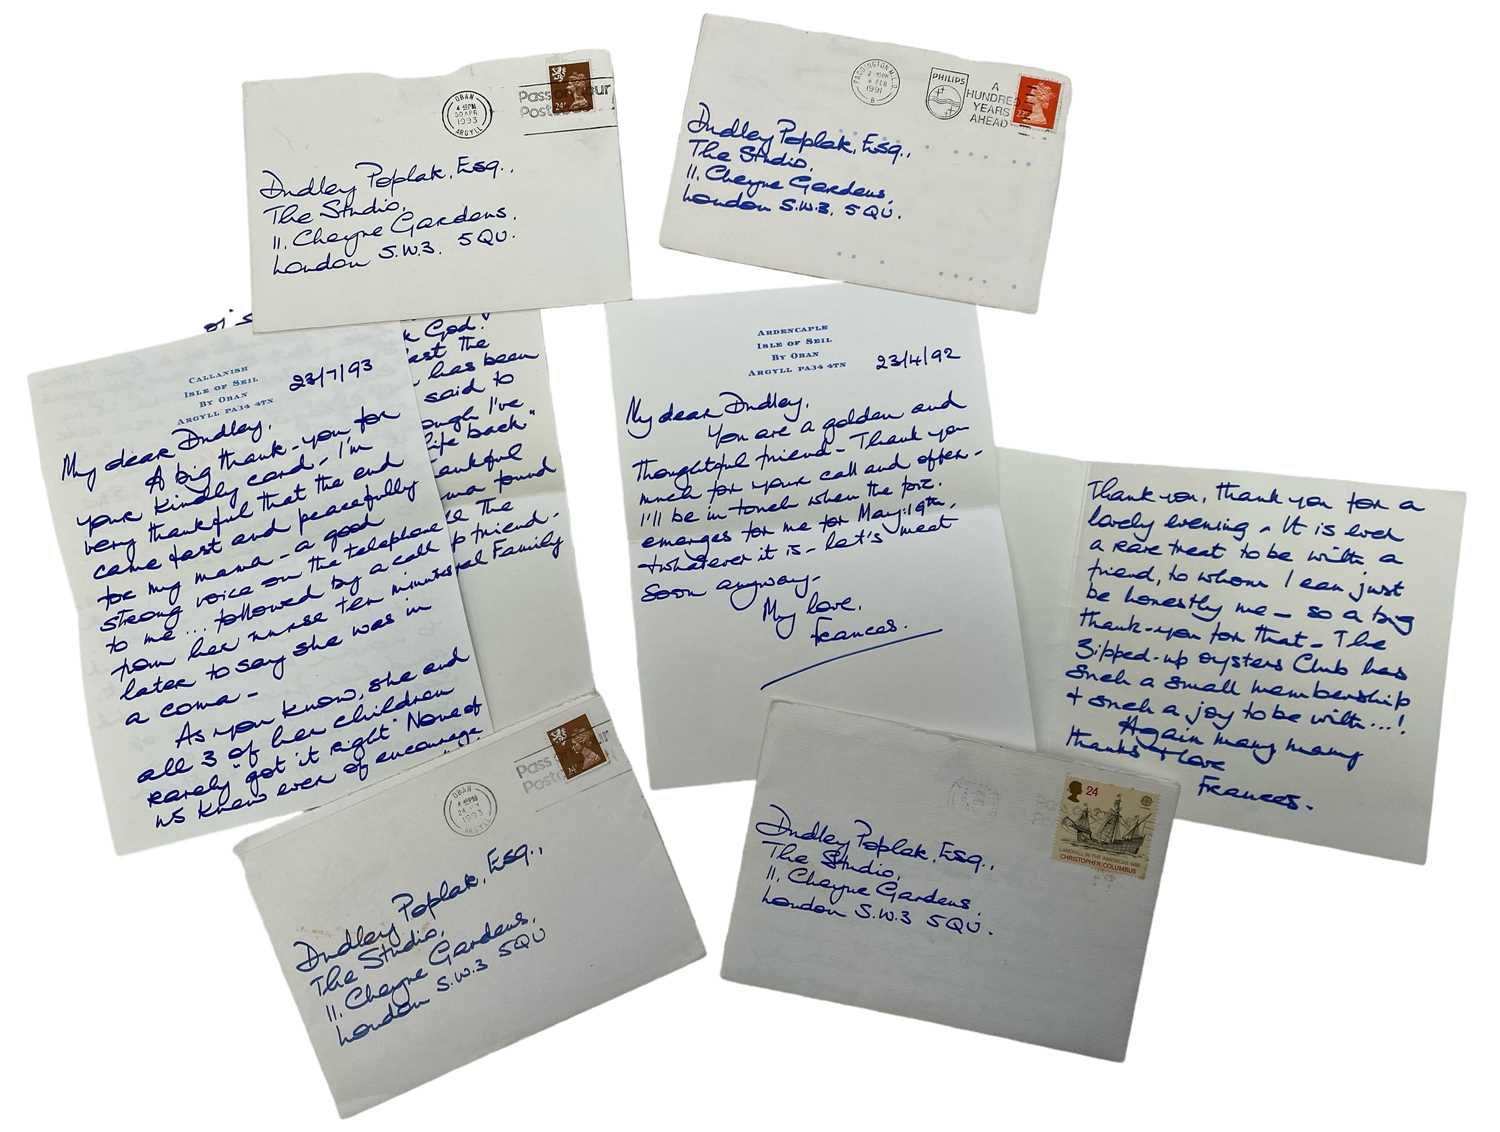 OBAN
4 15PM
30 APR
1993
ARGYLL
Pass on your
Postcode
24P
Dudley Poplak, Esq.,
The Studio,
11, Cheyne Gardens,
London S.W.3. 5QU.
PADDINGTON M.L.O.
4 FEB
1991
B
PHILIPS
A
HUNDRED
YEARS
AHEAD
Dudley Poplak, Esq.,
The Studio,
11, Cheyne Gardens,
London S.W.3. 5QU.
CALLANISH
ISLE OF SEIL
BY OBAN
ARGYLL PA34 4TN
23/7/93
My dear Dudley,
A big thank-you for
your kindly card - I'm
very thankful that the end
came fast and peacefully
for my mama - a good
strong voice on the telephone
to me ... followed by a call
from her nurse ten minutes
later to say she was in
a coma -
As you know, she and
all 3 of her children
rarely "got it right" None of
us knew ever of encourage
God!
the
has been
said to
I've
life back"
found
the
friend -
Family
ARDENCAPLE
ISLE OF SEIL
BY OBAN
ARGYLL PA34 4TN
23/4/92
My dear Dudley,
You are a golden and
thoughtful friend - Thank you
much for your call and offer -
I'll be in touch when the
emerges for me for May 19th,
+ whatever it is - let's meet
soon anyway -
My love,
Frances.
Thank you, thank you for a
lovely evening - It is ever
a rare treat to be with a
friend, to whom I can just
be honestly me - so a big
thank-you for that - The
Zipped-up oysters Club has
such a small membership
+ such a joy to be with ...!
Again many many
thanks + love
Frances.
OBAN
1993
ARGYLL
Pass on
Post
24P
Dudley Poplak, Esq.,
The Studio,
11, Cheyne Gardens,
London S.W.3 5QU
24
LANDFALL IN THE AMERICAS 1492
CHRISTOPHER COLUMBUS
Dudley Poplak, Esq.,
The Studio,
11, Cheyne Gardens,
London S.W.3 5QU.